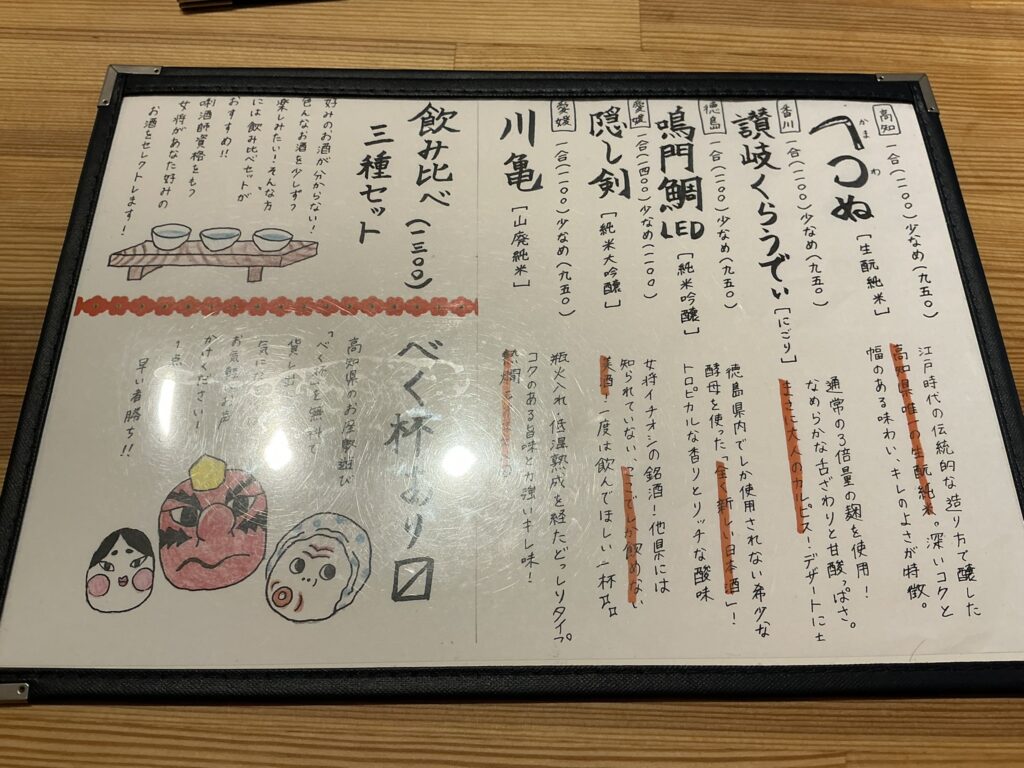 高知
一合(一一〇〇)少なめ(九五〇)
かまわ
ぬ
[生酛純米]
江戸時代の伝統的な造り方で醸した
高知県唯一の生酛純米。深いコクと
幅のある味わい、キレのよさが特徴。
香川
一合(一一〇〇)少なめ(九五〇)
讃岐くらうでぃ
[にごり]
通常の3倍量の麹を使用!
なめらかな舌ざわりと甘酸っぱさ。
まさに大人のカルピス!デザートに±
徳島
一合(一一〇〇)少なめ(九五〇)
鳴門鯛
LED
[純米吟醸]
徳島県内でしか使用されない希少な
酵母を使った「全く新しい日本酒」!
トロピカルな香りとリッチな酸味
愛媛
一合(一四〇〇)少なめ(一一〇〇)
隠し剣
[純米大吟醸]
女将イチオシの銘酒!他県には
知られていない、ここでしか飲めない
美酒!一度は飲んでほしい一杯
愛媛
一合(一一〇〇)少なめ(九五〇)
川亀
[山廃純米]
瓶火入れ・低温熟成を経たどっしりタイプ。
コクのある旨味と力強いキレ味!
熱燗
飲み比べ(一三〇〇)
三種セット
好みのお酒が分からない!
色んなお酒を少しずつ
楽しみたい!そんな方
には飲み比べセットが
おすすめ!!
唎酒師資格をもつ
女将があなた好みの
お酒をセレクトします!
べく杯あり〼
高知県のお座敷遊び
「べく杯」を無料で
貸し出
気に
お気軽にお声
かけください!
1点
早い者勝ち!!